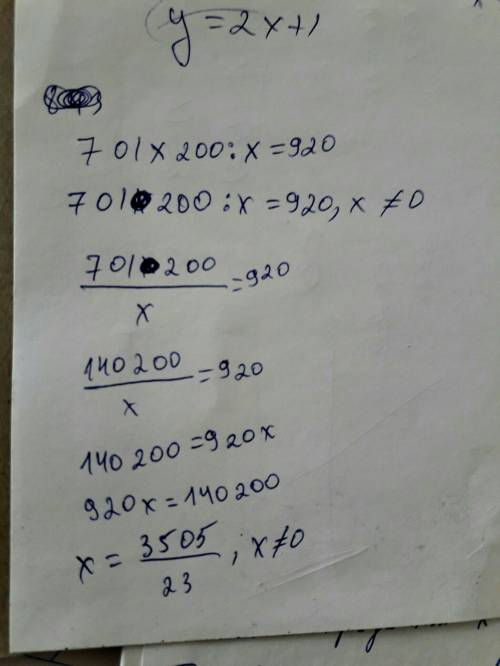 y = 2x+1
701 x 200 : x = 920
701 • 200 : x = 920, x ≠ 0
701 • 200 / x = 920
140 200 / x = 920
140 200 = 920x
920x = 140 200
x = 3505 / 23 ; x ≠ 0